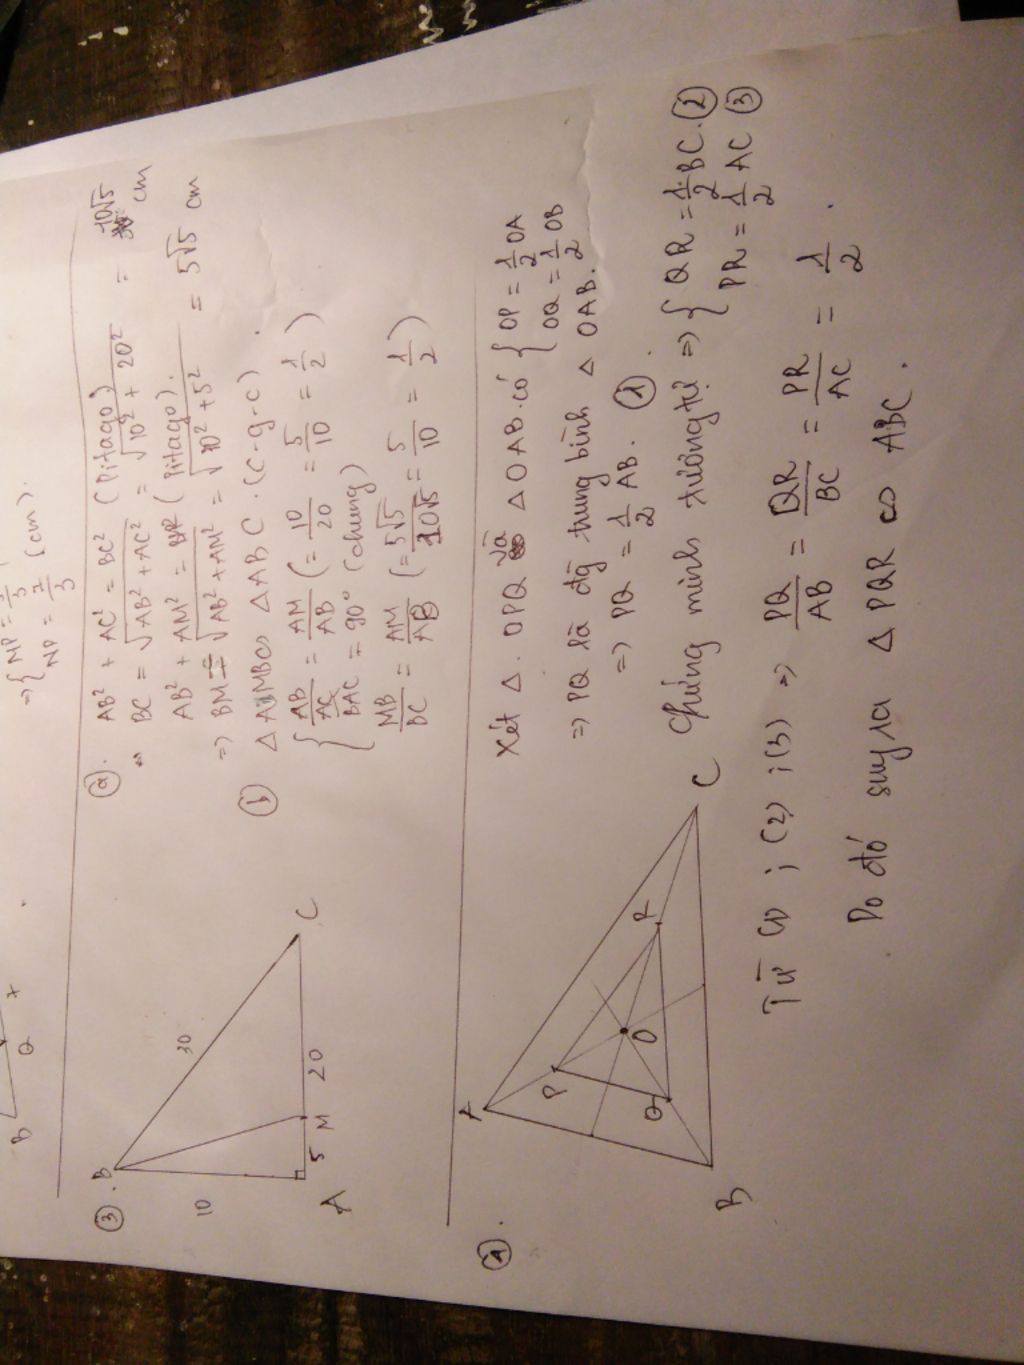 => { MP = 
NP = 7/3 (cm).
B Q x
③.
B
10
30
A 5 M 20 C
ⓐ. AB² + AC² = BC² (Pitago)
BC = √AB² + AC² = √10² + 20² = 10√5 cm
AB² + AM² = (Pitago).
=> BM = √AB² + AM² = √10² + 5² = 5√5 cm
ⓑ Δ AMB ∽ Δ ABC. (C-g-c).
{ AB/AC = AM/AB (= 10/20 = 5/10 = 1/2)
BAC = 90° (chung)
MB/BC = AM/AB (= 5√5/10√5 = 5/10 = 1/2)
④.
A
P
O
Q
R
B
C
Xét Δ. OPQ và Δ OAB. có { OP = 1/2 OA
OQ = 1/2 OB
=> PQ là đg trung bình Δ OAB.
=> PQ = 1/2 AB. ①.
Chứng minh tương tự => { QR = 1/2 BC. ②
PR = 1/2 AC ③
Từ (1) ; (2) ; (3) => PQ/AB = QR/BC = PR/AC = 1/2.
Do đó suy ra Δ PQR ∽ ABC.